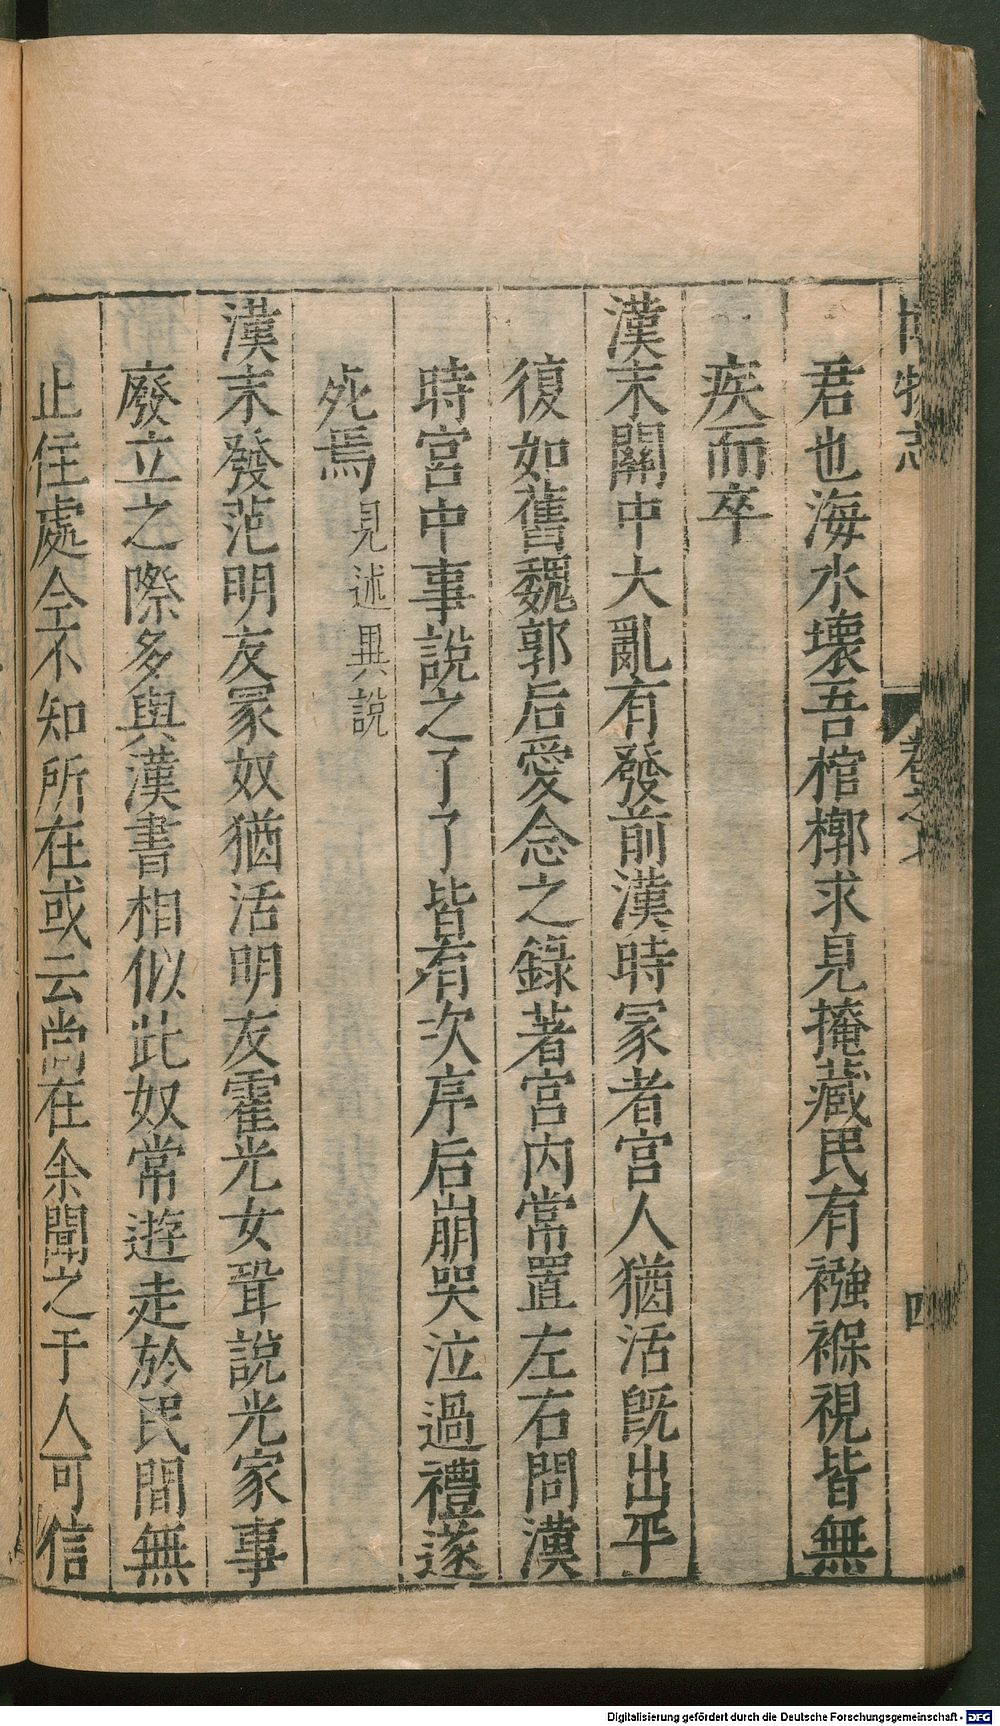 博物志 卷之七 四
君也海水壞吾棺槨求見掩藏民有襁褓視皆無
疾而卒
漢末關中大亂有發前漢時冡者宮人猶活旣出平
復如舊魏郭后愛念之錄著宮内常置左右問漢
時宮中事說之了了皆有次序后崩哭泣過禮遂
死焉見述異說
漢末發范明友冡奴猶活明友霍光女聓說光家事
廢立之際多與漢書相似此奴常遊走於民間無
止住處今不知所在或云尚在余聞之于人可信
Digitalisierung gefördert durch die Deutsche Forschungsgemeinschaft - DFG